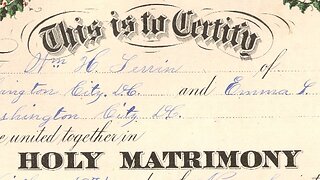 This is to Certify
Wm H. Perrin of
ington City, D.C. and Emma L.
shington City D.C.
e united together in
HOLY MATRIMONY